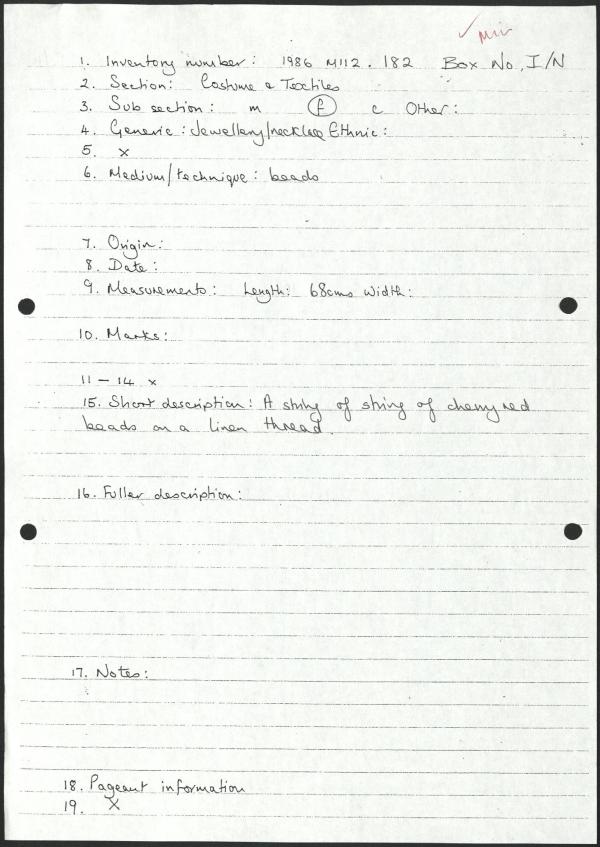 1. Inventory number: 1986 M112.182 Box No. I/N
2. Section: Costume & Textiles
3. Sub section: m f c Other:
4. Generic: Jewellery/necklace Ethnic:
5. x
6. Medium/technique: beads
7. Origin:
8. Date:
9. Measurements: Length: 68cms Width:
10. Marks:
11 – 14 x
15. Short description: A string of string of cherry red
beads on a linen thread.
16. Fuller description:
17. Notes:
18. Pageant information
19. X